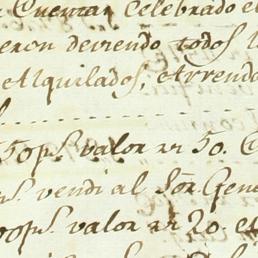 Cuentas Celebrado e
eron deviendo todos l
Alquilados, Arrendo
50ps. valor rs 50.
ps. vendi al Sõr. Gene
00ps. valor rs 20. e